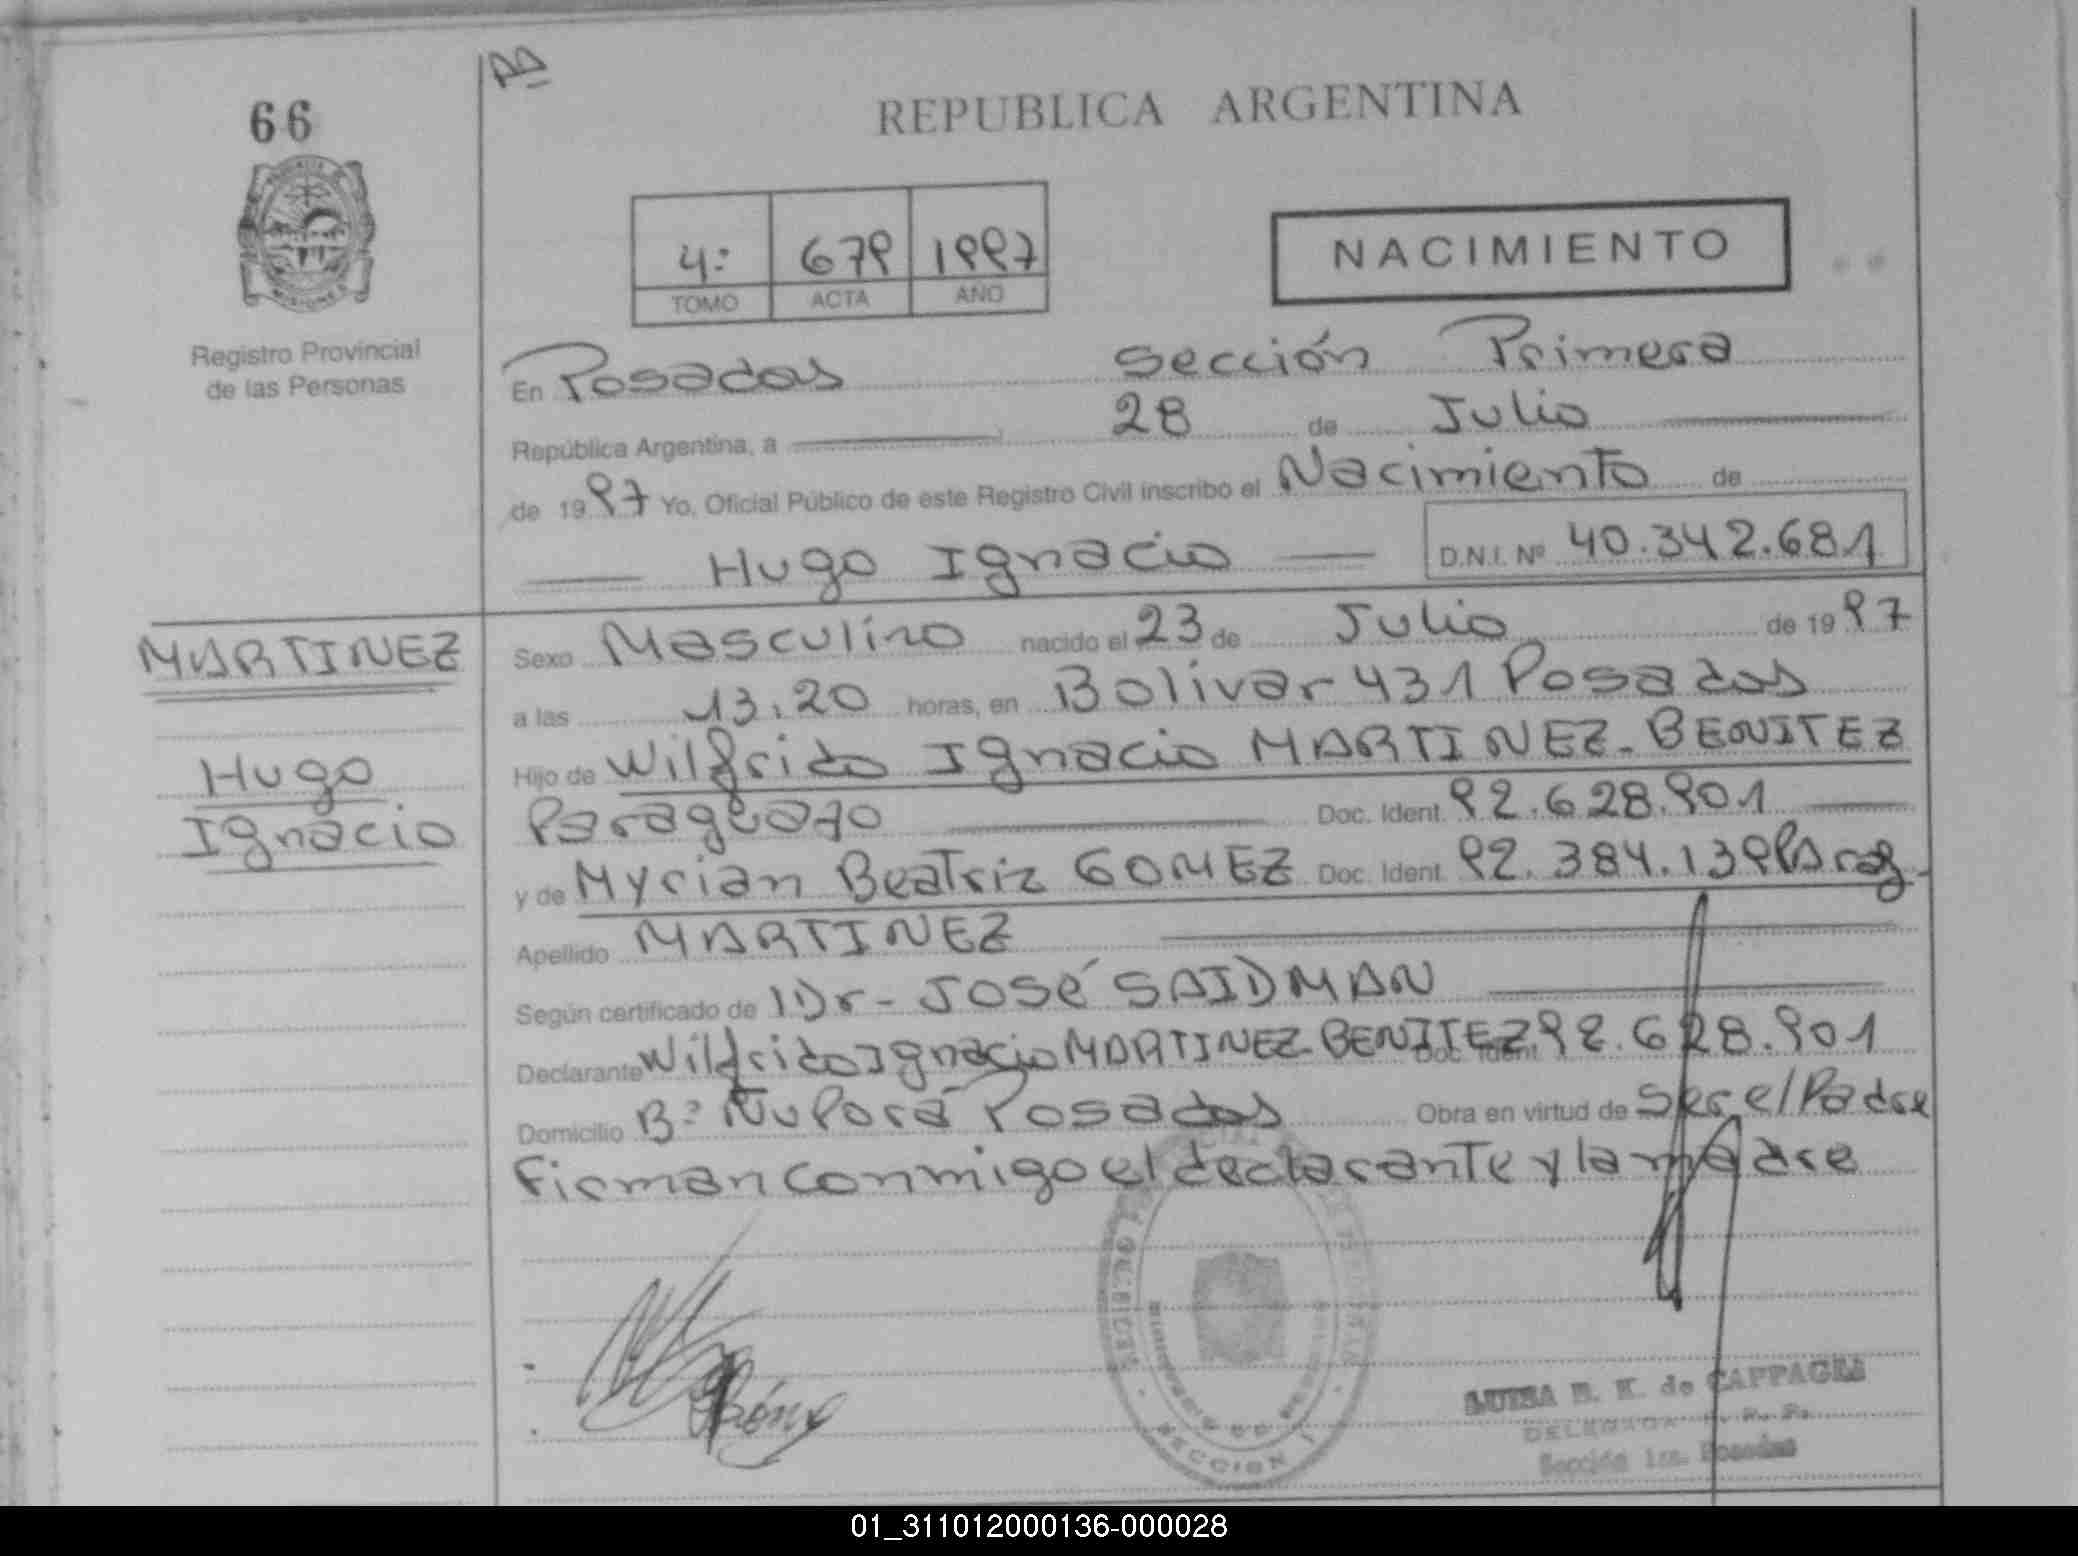 66
REPUBLICA ARGENTINA
4: 679 1997
TOMO ACTA AÑO
NACIMIENTO
Registro Provincial
de las Personas
En Posadas Sección Primera
República Argentina, a 28 de Julio
de 1997 Yo, Oficial Público de este Registro Civil inscribo el Nacimiento de
Hugo Ignacio D.N.I. Nº 40.342.681
MARTINEZ
Hugo
Ignacio
Sexo Masculino nacido el 23 de Julio de 1997
a las 13:20 horas, en Bolivar 431 Posadas
Hijo de Wilfrido Ignacio MARTINEZ-BENITEZ
Paraguayo Doc. Ident. 92.628.901
y de Myrian Beatriz GOMEZ Doc. Ident. 92.384.139 Parag.
Apellido MARTINEZ
Según certificado de Dr- JOSÉ SAIDMAN
Declarante Wilfrido Ignacio MARTINEZ-BENITEZ Doc. Ident. 92.628.901
Domicilio Bº Ñu Porá Posadas Obra en virtud de Ser el Padre
Firman conmigo el declarante y la madre
SECCION 1
LUISA de CAPPAGLI
DELEGADA
Sección 1ra. Posadas
01_311012000136-000028